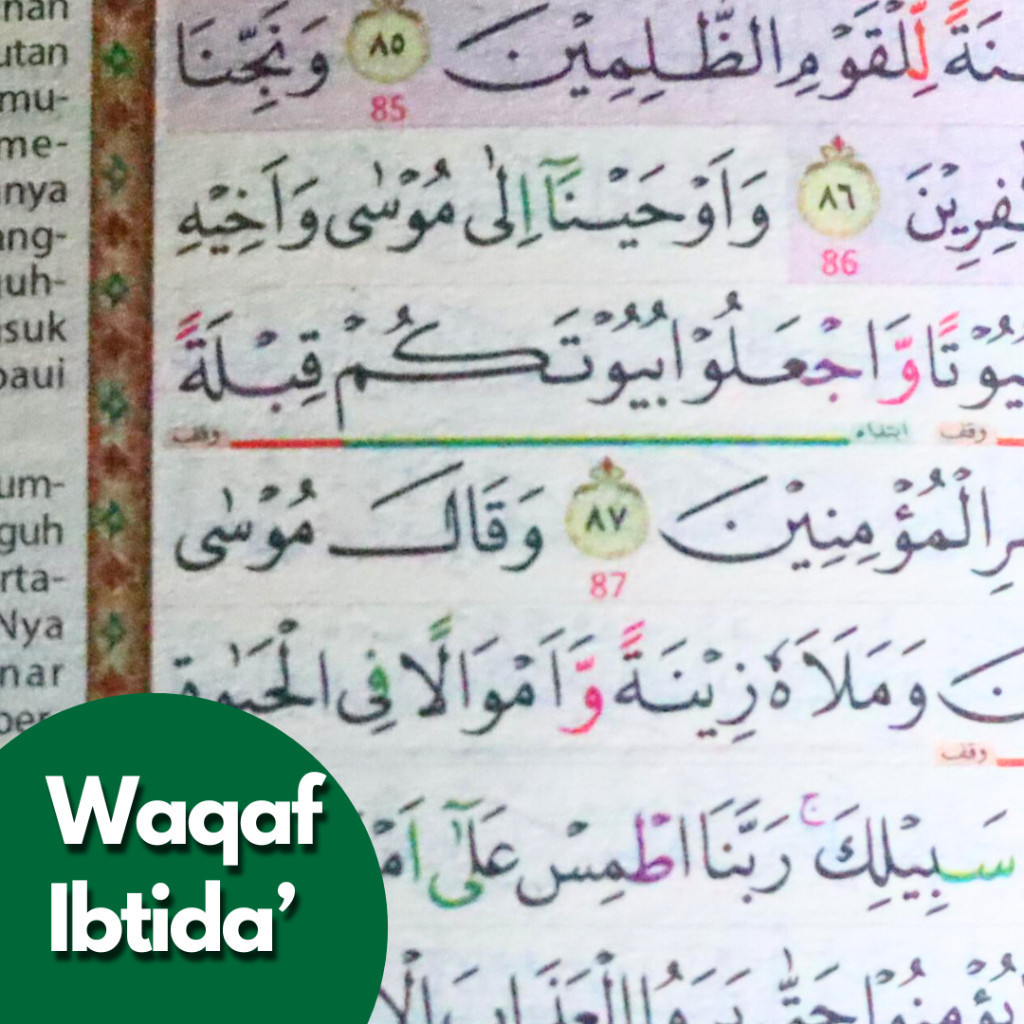 utan
mu-
me-
ang-
uh-
suk
um-
guh
rta-
Nya
nar
لِّلْقَوْمِ الظّٰلِمِيْنَ ٨٥ وَنَجِّنَا
85
فِرِيْنَ ٨٦ وَاَوْحَيْنَآ اِلٰى مُوْسٰى وَاَخِيْهِ
86
يُوْتًا وَّاجْعَلُوْا بُيُوْتَكُمْ قِبْلَةً
وقف ابتداء وقف
رِ الْمُؤْمِنِيْنَ ٨٧ وَقَالَ مُوْسٰى
87
نَ وَمَلَاَهٗ زِيْنَةً وَّاَمْوَالًا فِى الْحَيٰوةِ
وقف
سَبِيْلِكَ ۚ رَبَّنَا اطْمِسْ عَلٰٓى اَمْ
يُؤْمِنُوْا حَتّٰى يَرَوُا الْعَذَابَ الْا
Waqaf
Ibtida’